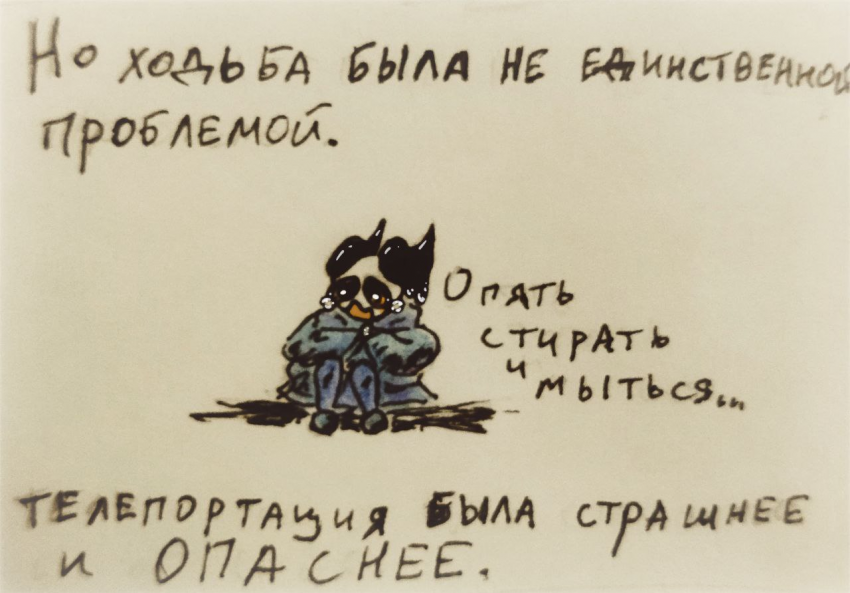 Но ходьба была не единственной
проблемой.
Опять
стирать
и
мыться...
телепортация была страшнее
и ОПАСНЕЕ.